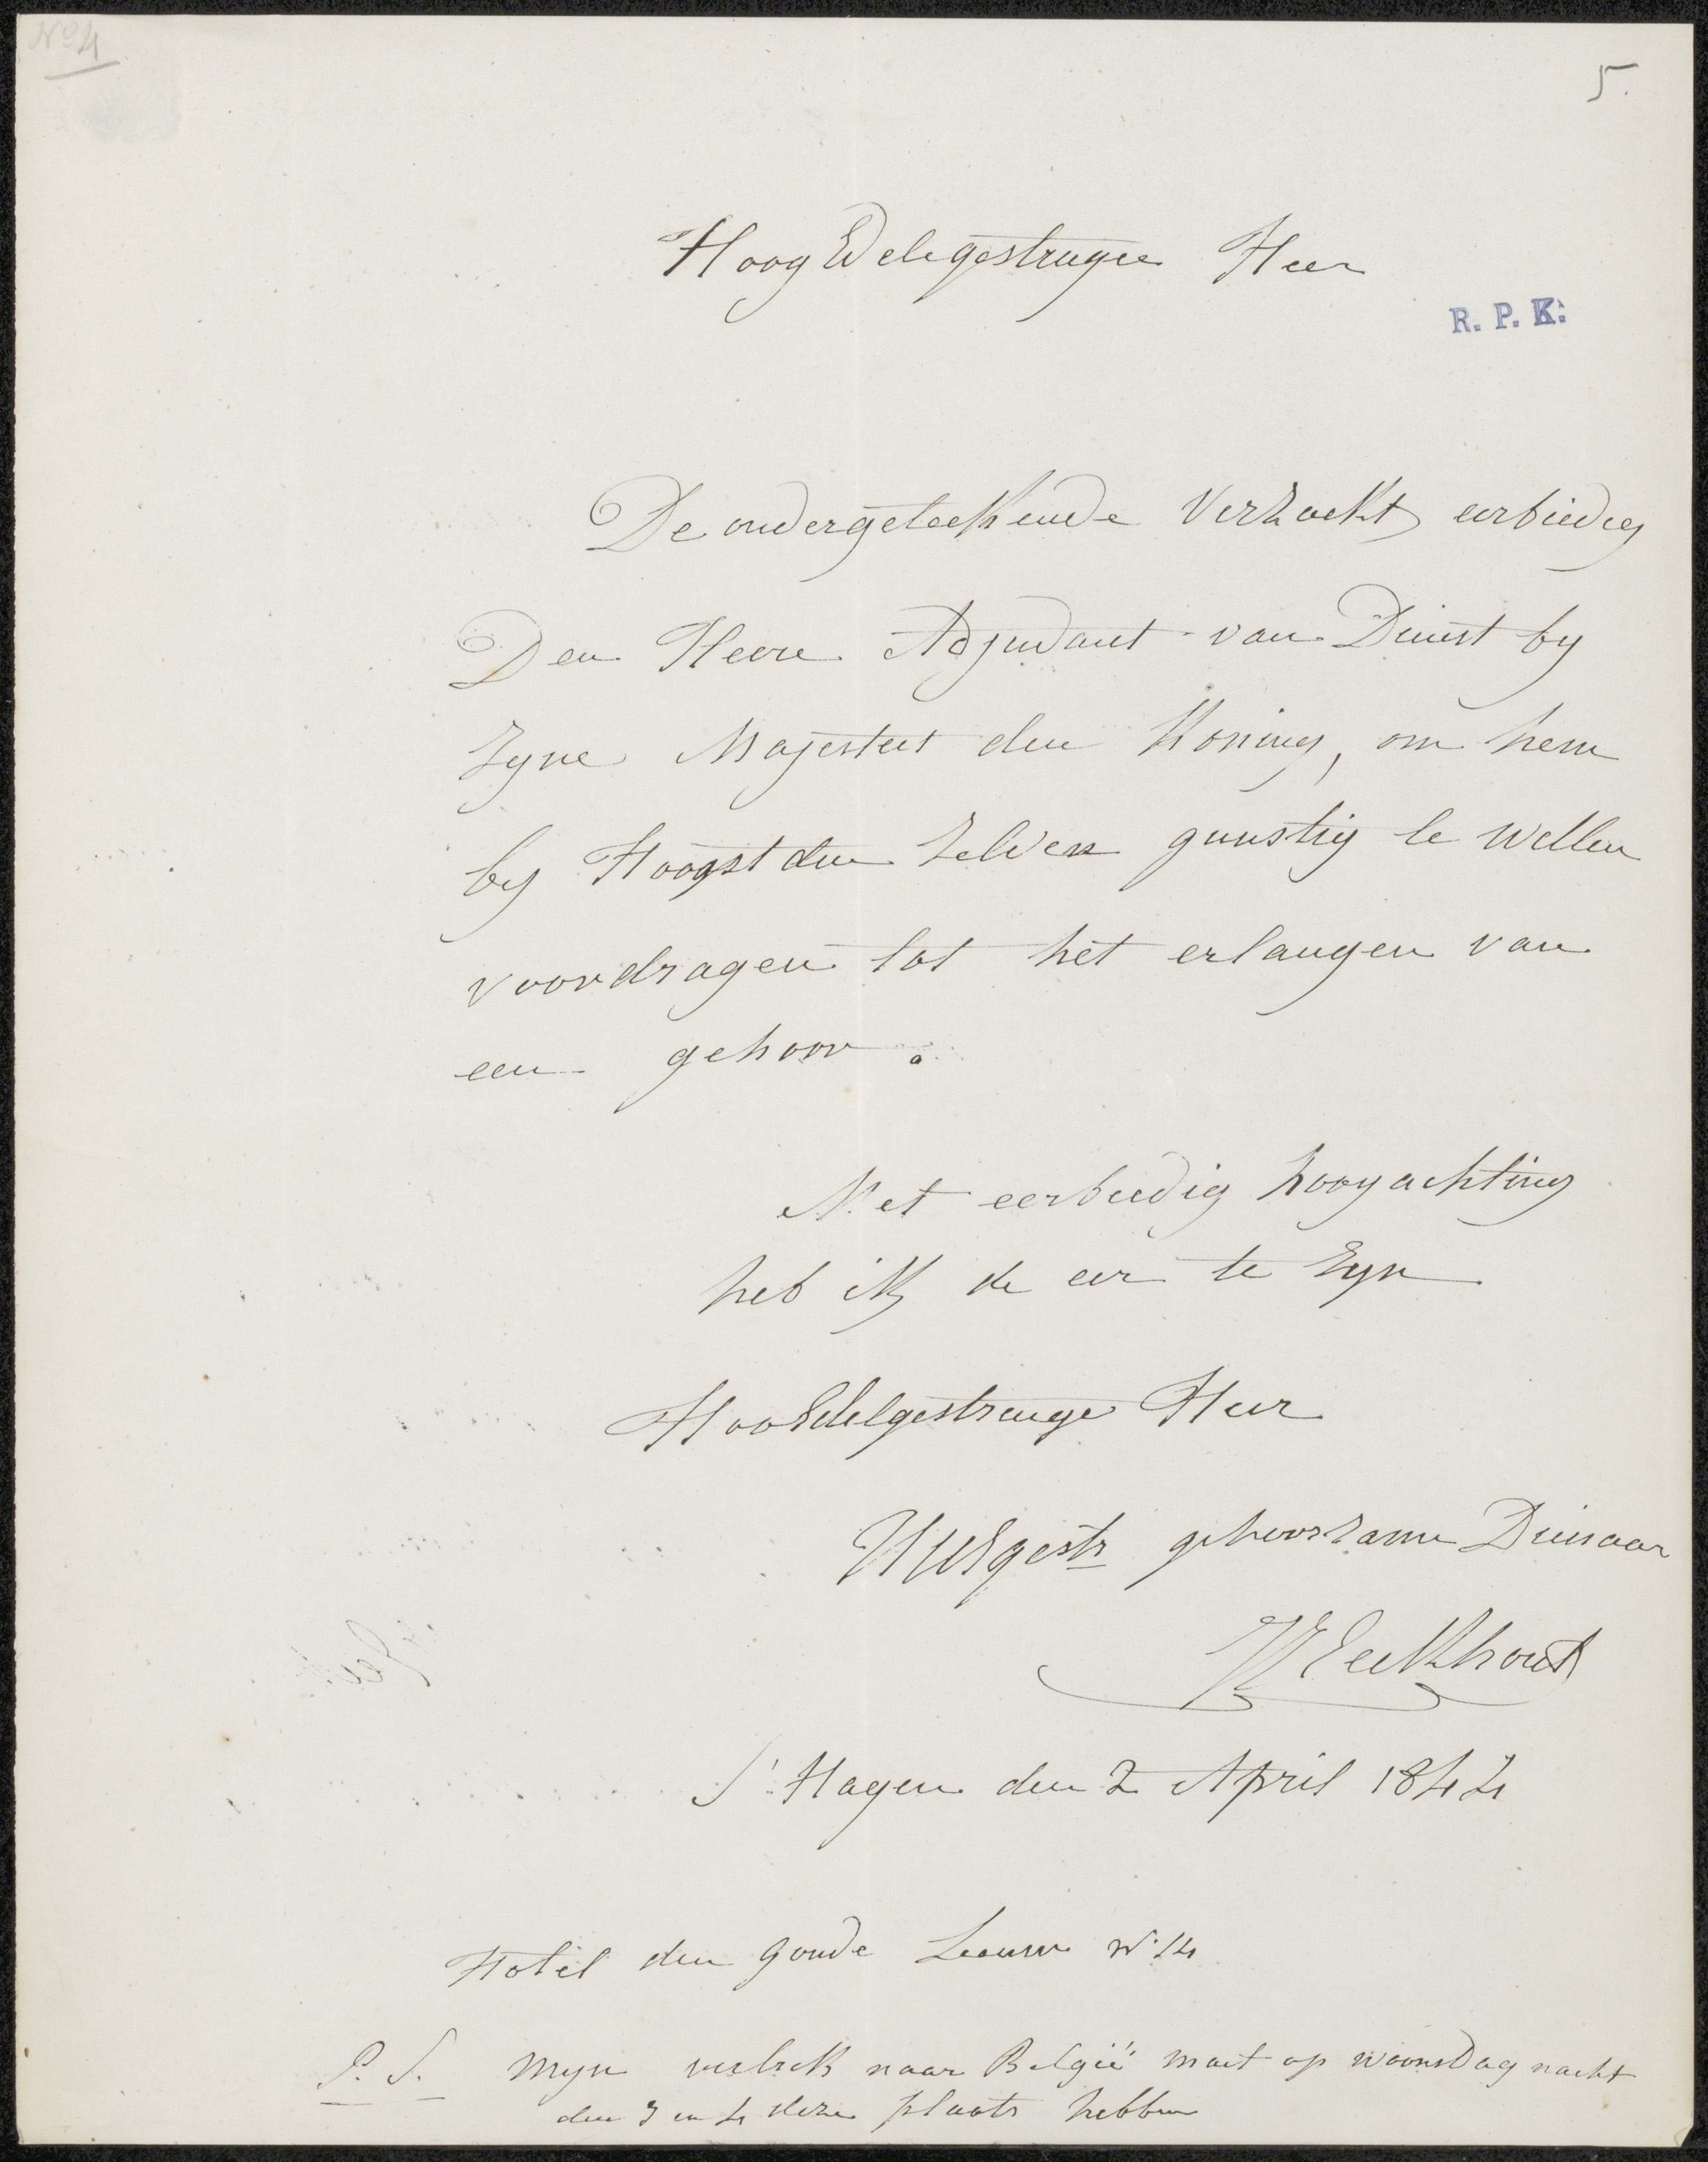 No 4
5.
HoogEdelegestrenge Heer
R. P. K.
De ondergeteekende Verzoekt eerbiedig
Den Heere Adjudant van Dienst by
Zyne Majesteit den Koning, om hem
by Hoogst den Zelven gunstig te willen
voordragen tot het erlangen van
een gehoor.
Met eerbiedig hoogachting
heb ik de eer te Zyn
HooEdelgestrenge Heer
UWEgestr gehoorzame Dienaar
Eeckhout
S' Hagen den 2 April 1844
Hotel den goude Leeuw No 14
P. S. Myn vertrek naar België moet op woensdag nacht
den 3 en 4 dezer plaats hebben